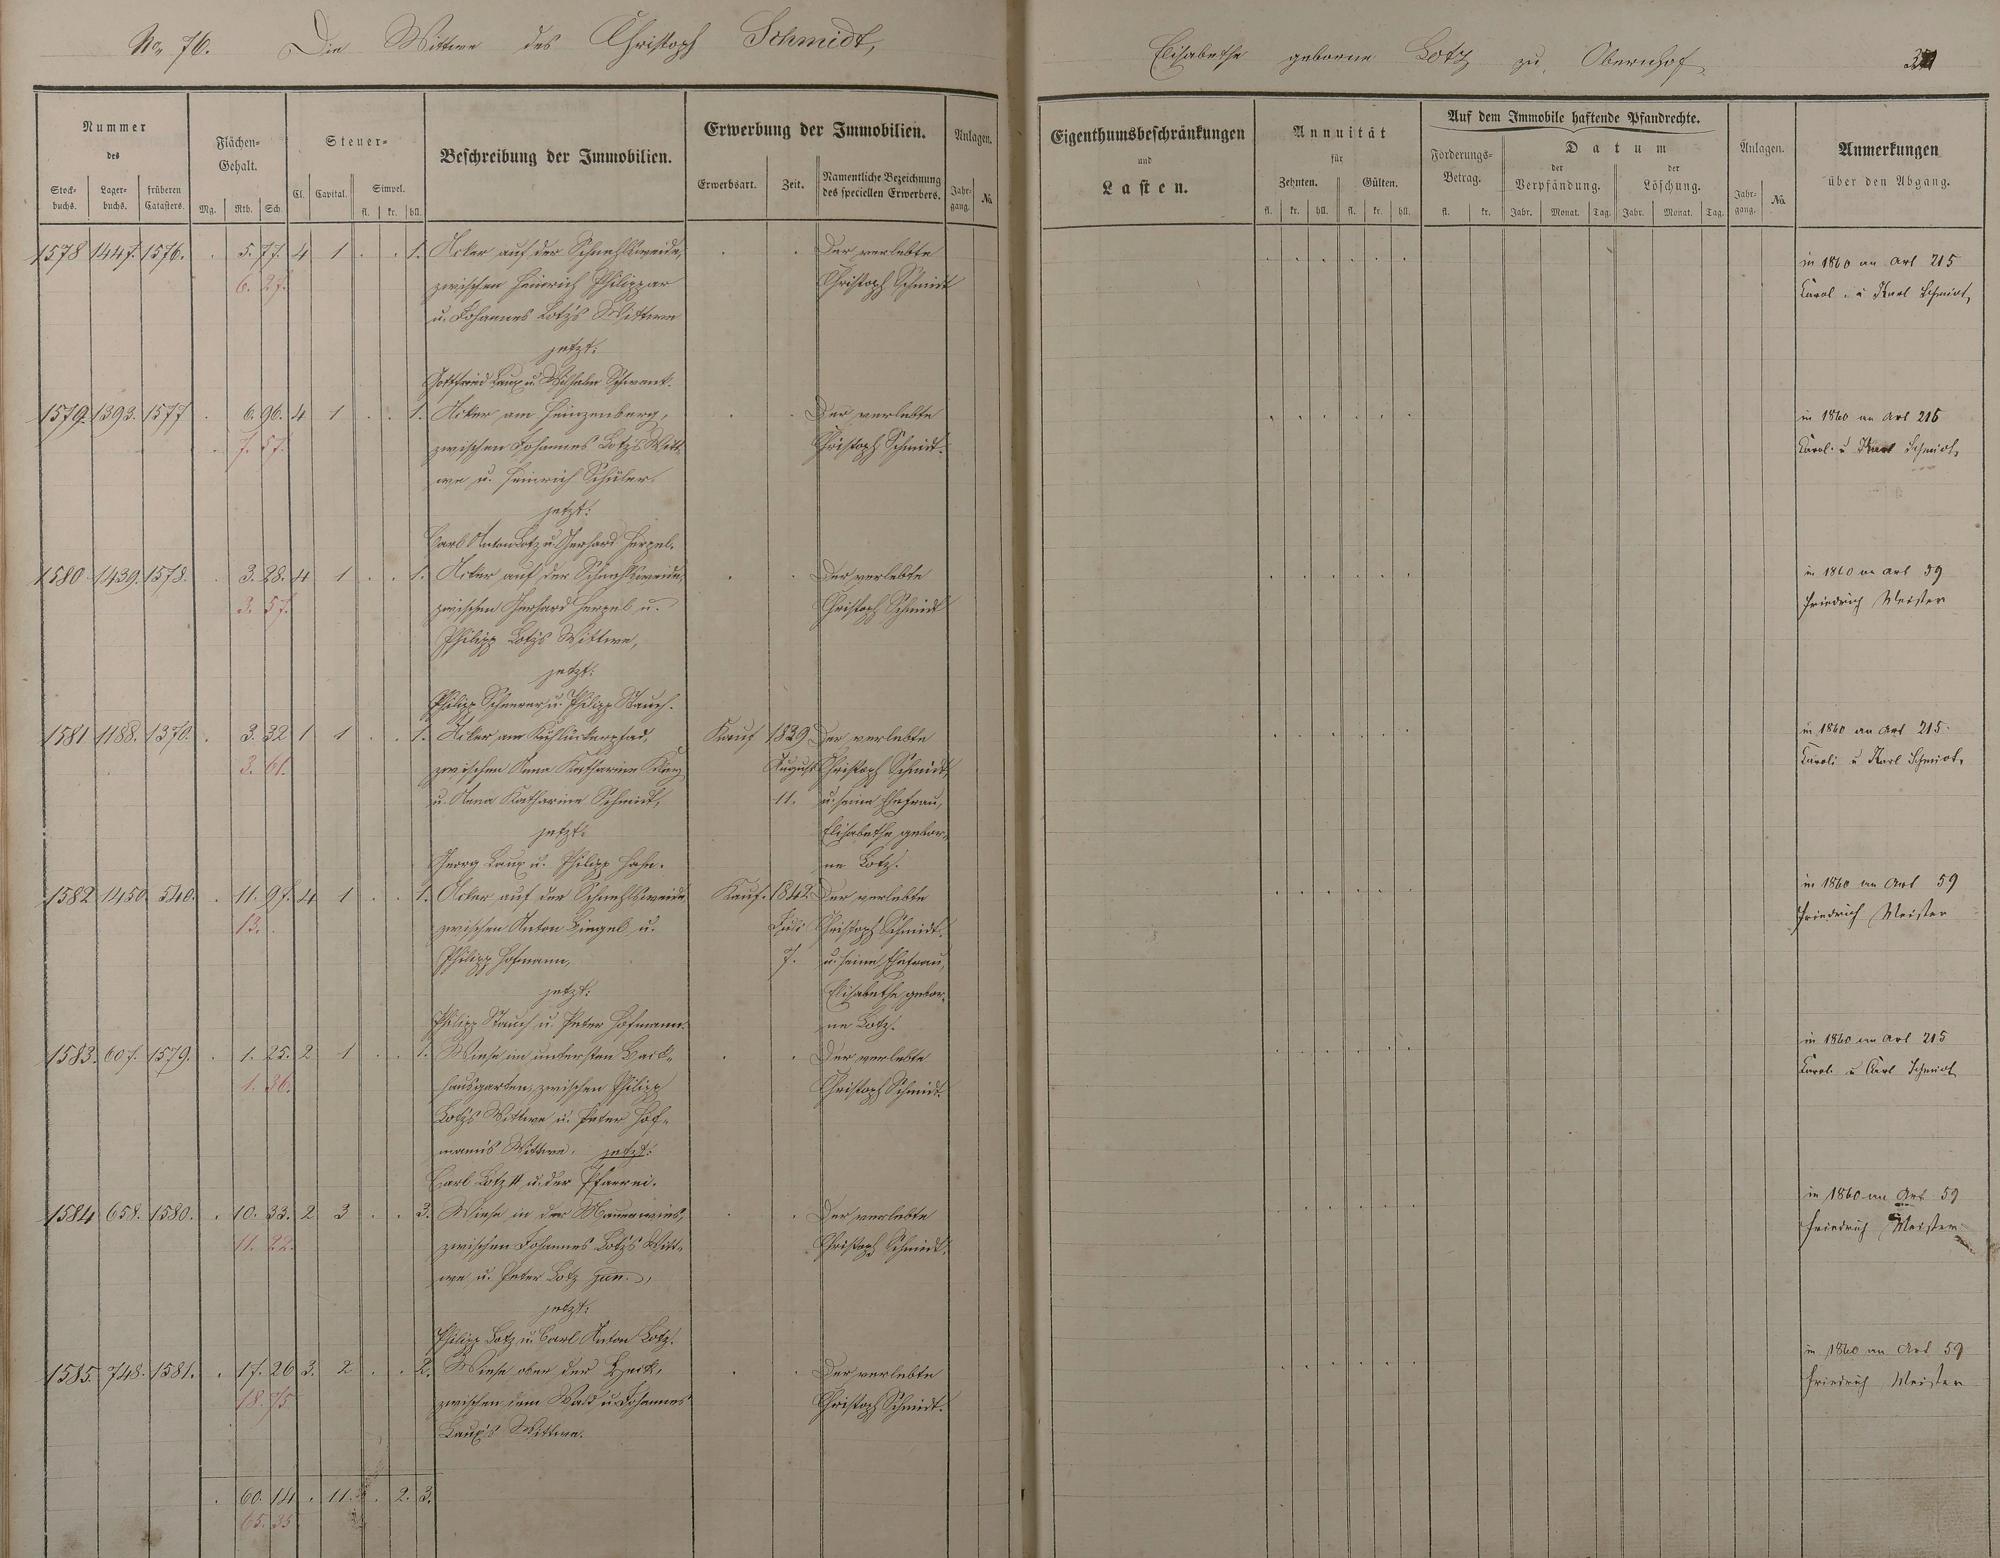 No 76. Die Wittwe des Christoph Schmidt,
Elisabethe geborne Lotz zu Obernhof
Nummer
des
Stock-
buchs.
Lager-
buchs.
früheren
Catasters.
Flächen-
Gehalt.
Mg.
Rth.
Sch.
Steuer-
Cl.
Capital.
Simpel.
fl.
kr.
hll.
Beschreibung der Immobilien.
Erwerbung der Immobilien.
Erwerbsart.
Zeit.
Namentliche Bezeichnung
des speciellen Erwerbers.
Anlagen.
Jahr-
gang.
No.
Eigenthumsbeschränkungen
und
Lasten.
Annuität
für
Zehnten.
Gülten.
fl. kr. hll. fl. kr. hll.
Auf dem Immobile haftende Pfandrechte.
Forderungs-
Betrag.
fl. kr.
Datum
der
Verpfändung.
der
Löschung.
Jahr. Monat. Tag. Jahr. Monat. Tag.
Anlagen.
Jahr-
gang.
No.
Anmerkungen
über den Abgang.
1578 1447. 1576. . 5. 77. 4 1 . . 1. Acker auf der , . . Der verlebte
6. 27. zwischen Heinrich Philippar Christoph Schmidt
u. Johannes Lotz's Wittwe
jetzt:
Gottfried Laux u. Wilhelm Schwank.
in 1860 an Art 215
Karol. u Karl Schmidt,
1579. 1393. 1577 . 6. 96. 4 1 . . 1. Acker am Heinzenberg, . . Der verlebte
7. 57. zwischen Johannes Lotz's Witt- Christoph Schmidt.
we u. Heinrich Schüler.
jetzt:
Carl Anton Lotz u. Gerhard Herpel.
in 1860 an Art 215
Karol. u Karl Schmidt,
1580. 1439. 1578. . 3. 28. 4 1 . . 1. Acker auf der , . . Der verlebte
3. 57. zwischen Gerhard Herpel u. Christoph Schmidt
Philipp Lotz's Wittwe,
jetzt:
Philipp u. Philipp Stauch.
in 1860 an Art 59
Friedrich Meister
1581 1188. 1370. . 3. 32 1 1 . . 1. Acker am , Kauf 1839 Der verlebte
3. 61. zwischen Anna Katharine August Christoph Schmidt,
u. Anna Katharine Schmidt, 11. u. seine Ehefrau,
jetzt: Elisabethe gebor-
Georg Laux u. Philipp Hahn. ne Lotz.
in 1860 an Art 215
Karoli u Karl Schmidt,
1582 1450. 540. . 11. 97. 4 1 . . 1. Acker auf der Kauf. 1842. Der verlebte
13. . zwischen Anton u. Juli Christoph Schmidt.
Philipp Hofmann, 7. u. seine Ehefrau,
jetzt: Elisabethe gebor-
Philipp Stauch u. Peter Hofmann. ne Lotz.
in 1860 an Art 59
Friedrich Meister
1583. 607. 1579. . 1. 25. 2 1 . . 1. Wiese im untersten Back- . . Der verlebte
1. 36. hausgarten, zwischen Philipp Christoph Schmidt.
Lotz's Wittwe u. Peter Hof-
mann's Wittwe. jetzt:
Carl Lotz II u. der Pfarrei.
in 1860 an Art 215
Karol. u Karl Schmidt
1584 658. 1580. . 10. 33. 2 3 . . 3. Wiese in der , . . Der verlebte
11. 22. zwischen Johannes Lotz's Witt- Christoph Schmidt.
we u. Peter Lotz jun.,
jetzt:
Philipp Lotz u. Carl Anton Lotz.
in 1860 an Art 59
Friedrich Meister
1585. 748. 1581. . 17. 26 3. 2 . . 2. Wiese ober der , . . Der verlebte
18. 75 zwischen dem Wald u. Johannes Christoph Schmidt.
Laux's Wittwe.
in 1860 an Art 59
Friedrich Meister
. 60. 14 . 11. . 2. 3.
65. 35